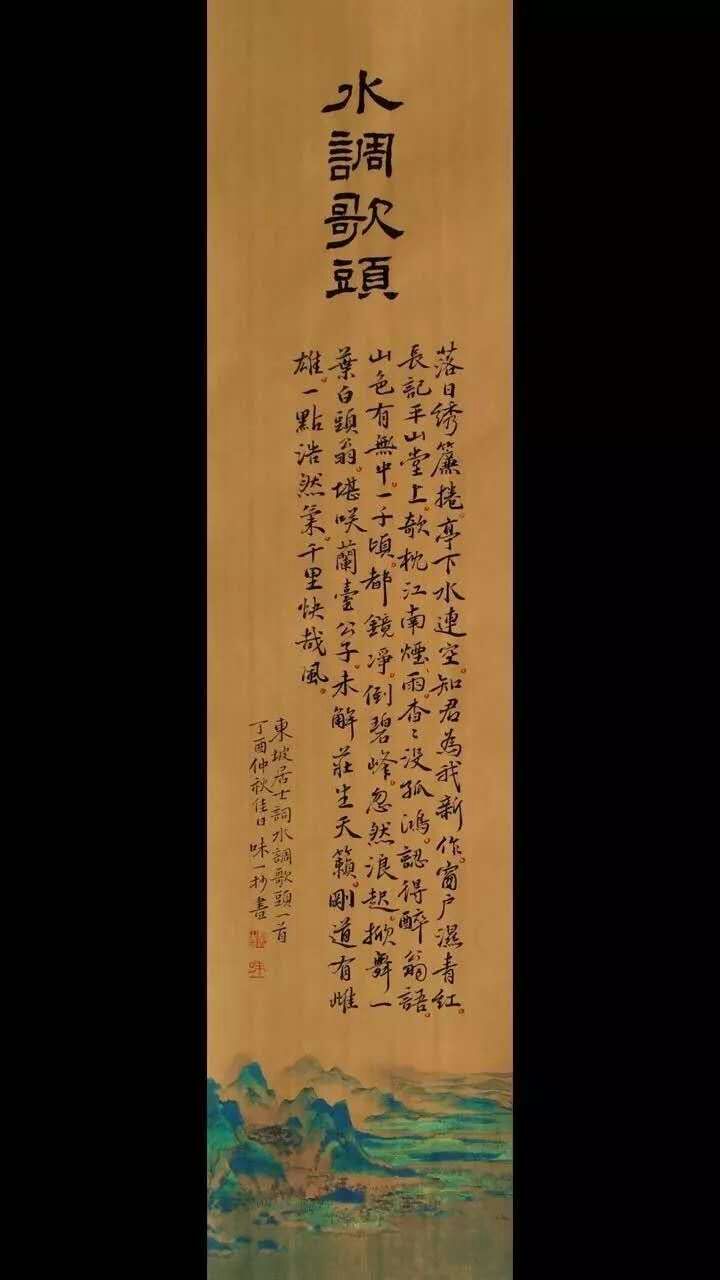 水調歌頭
落日綉簾捲。亭下水連空。知君為我新作。窗户濕青紅。
長記平山堂上。欹枕江南煙雨。杳〻没孤鴻。認得醉翁語。
山色有無中。一千頃。都鏡淨。倒碧峰。忽然浪起。掀舞一
葉白頭翁。堪咲蘭臺公子。未解莊生天籟。剛道有雌
雄。一點浩然氣。千里快哉風。
東坡居士詞水調歌頭一首
丁酉仲秋佳日味一抄書